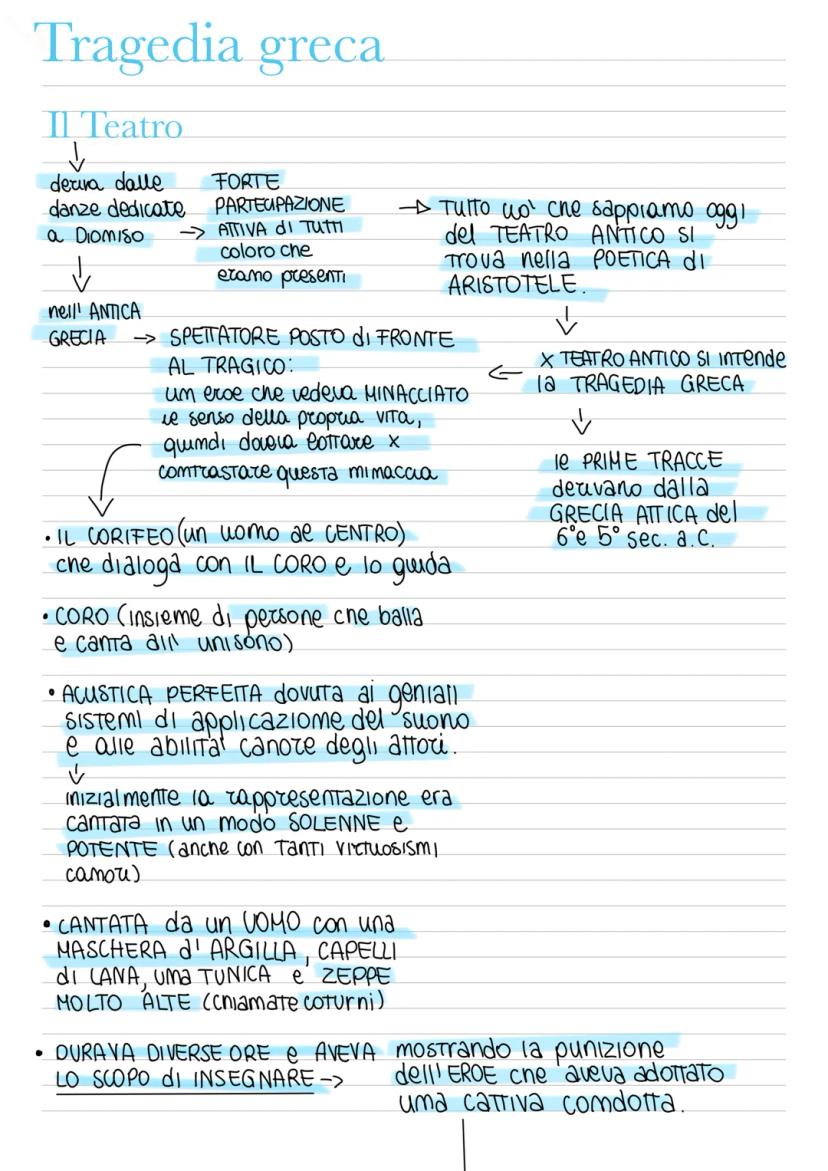 Tragedia greca
Il Teatro
deriva dalle
danze dedicate
a Dioniso →
FORTE
PARTECIPAZIONE
ATTIVA di TUTTI
coloro che
erano presenti
→ TUTTO ciò che sappiamo oggi
del TEATRO ANTICO SI
TROVA nella POETICA di
ARISTOTELE.
nell'ANTICA
GRECIA →
SPETTATORE POSTO di FRONTE
AL TRAGICO:
un eroe che vedeva MINACCIATO
il senso della propria VITA,
quindi doveva lottare x
contrastare questa minaccia
x TEATRO ANTICO SI intende
la TRAGEDIA GRECA
le PRIME TRACCE
derivano dalla
GRECIA ATTICA del
6° e 5° sec. a.C.
• IL CORIFEO (un uomo al CENTRO)
che dialoga con IL CORO e lo guida
• CORO (insieme di persone che balla
e canta all' unisono)
• ACUSTICA PERFETTA dovuta ai geniali
sistemi di applicazione del suono
e alle abilità canore degli attori.
inizialmente la rappresentazione era
cantata in un modo SOLENNE e
POTENTE (anche con tanti virtuosismi
canori)
• CANTATA da un UOMO con una
MASCHERA d' ARGILLA, CAPELLI
di LANA, una TUNICA e ZEPPE
MOLTO ALTE (chiamate coturni)
• DURAVA DIVERSE ORE e AVEVA
LO SCOPO di INSEGNARE →
mostrando la punizione
dell'EROE che aveva adottato
una cattiva condotta.